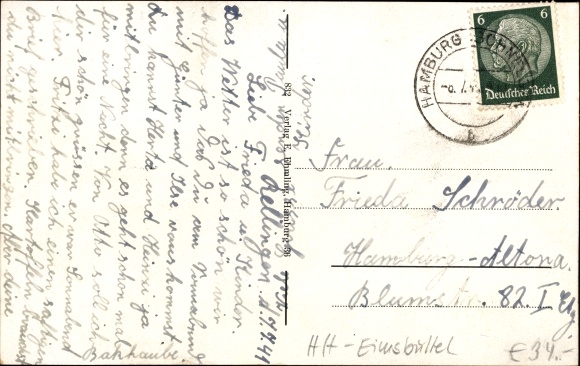 Rellingen d. 9.7.41
Liebe Frieda u. Kinder.
Das Wetter ist so schön wir
hoffen ja das du am Sonnabend
mit Günter und Ilse raus kommst
du kannst Herta und Heini ja
mitbringen denn es geht schon mal
für eine Nacht. Von Otto soll ich
dir schön grüssen er war Sonnabend
hier. heute habe ich einen saftigen
Brief geschrieben Kartoffeln brauchst
du nicht mitbringen. Aber deine
Bakhaube.
832 Verlag E. Hamburg
6 6
Deutsches Reich
HAMBURG
Frau.
Frieda Schröder.
Hamburg-Altona.
Blumstr. 82. I Etg
HH - Eimsbüttel
€34.-